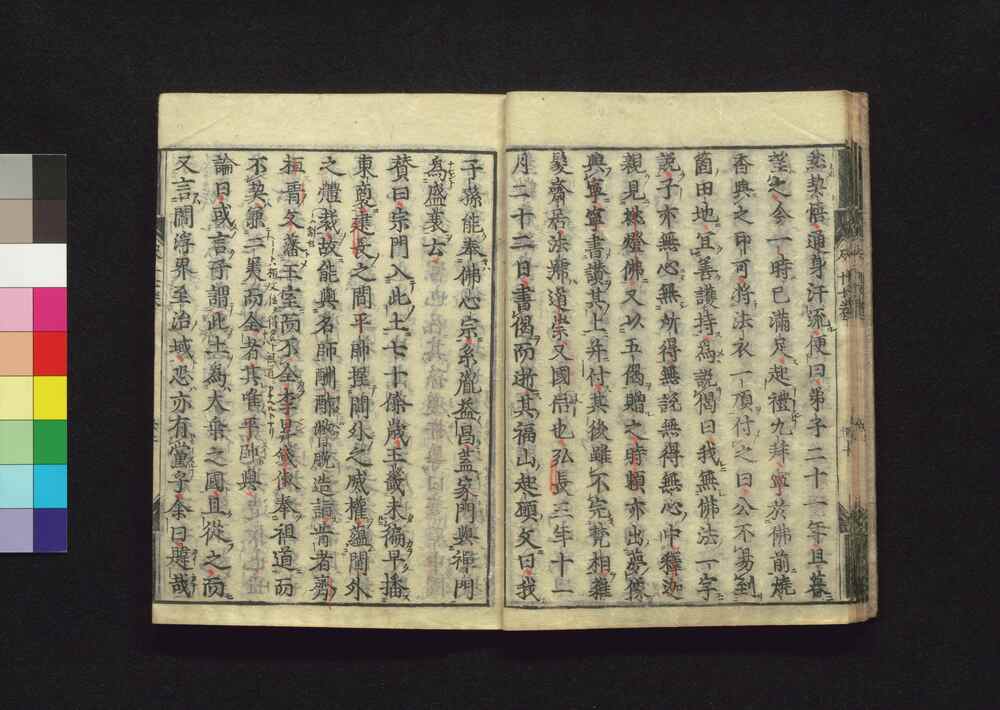 然契悟通身汗流便曰弟子二十一年旦暮
望之今一時已滿足起禮九拜寧於佛前燒
香與之印可將法衣一頂付之曰公不易到
箇田地宜善護持為說偈曰我無佛法一字
說子亦無心無所得無說無得無心中釋迦
親見燃燈佛又以五偈贈之時賴亦出夢像
與寧寧書讚其上并付其後雖不完鬚相雜
髮齋居法號道崇又國帋也弘長三年十一
月二十二日書偈而逝其福山起願文曰我
子孫能奉佛心宗系胤益昌蓋家門與禪門
為盛衰云
贊曰宗門入此土七十餘歲王畿未徧早播
東裔建長之間平帥握閫外之威權蘊閫外
之體裁故能與名師酬酢膺脫造詣肯者齊
桓晉文藩王室而不全李昇錢俶奉祖道而
不契兼二美而全者其唯平帥與
論曰或言子謂此土為大乘之國且從之而
又言閻浮界至治域恐亦有黨乎余曰韙哉